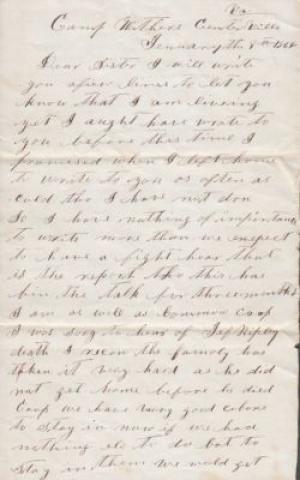 Va
Camp Withers Centerville
Jennary th 8th 186
Dear Sister I will write
you afew lines to let you
know that I am liveing
yet I aught have wrote to
you before this time I
promised when I left home
to write to you as often as
could tho I have not don
So I have nothing of importance
to write more than we expect
to have a fight hear that
is the report tho this has
bin the talk for three months
I am as well as Common Coop
I was sory to hear of Jef Ripley
death I recon the famoly has
taken it very hard as he did
not get home before he died
Coop we have very good cabens
to stay in now if we had
nothing els to do but to
stay in them we wold get